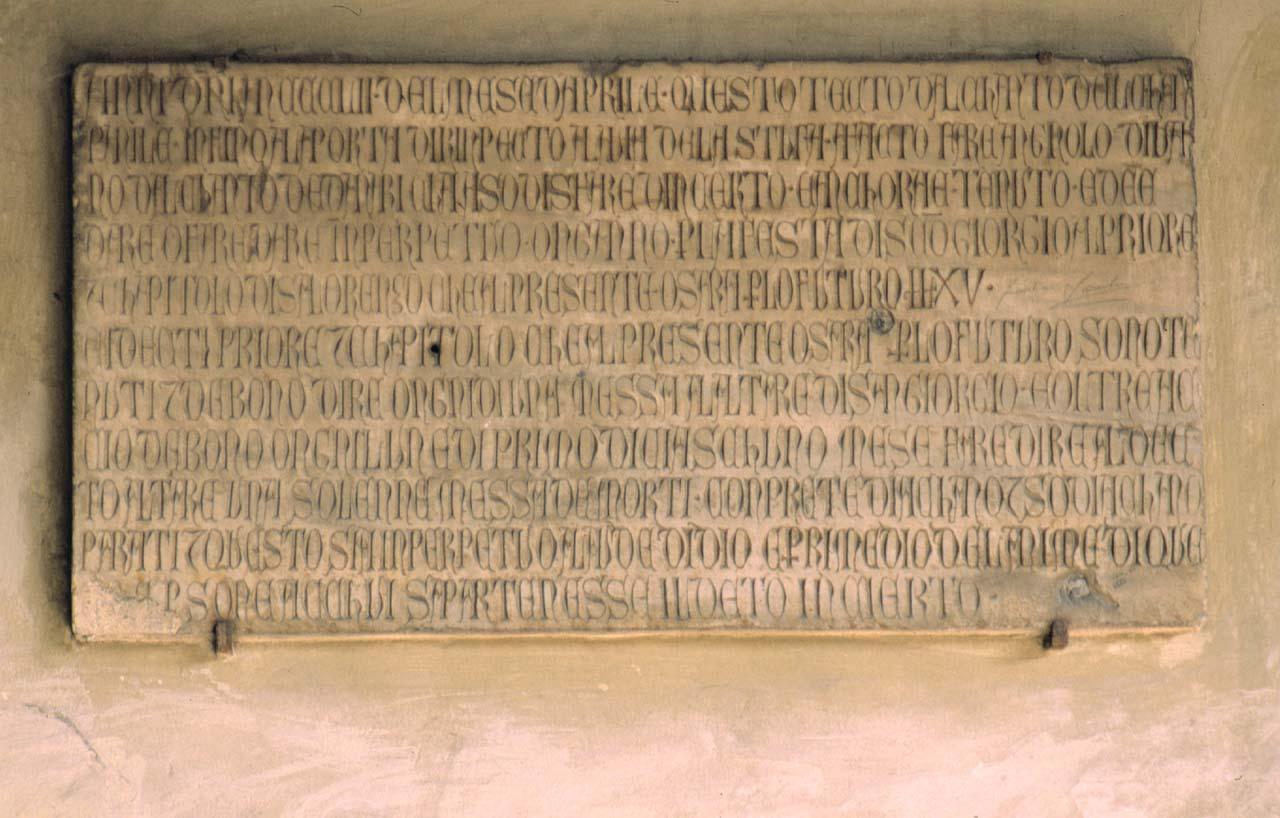 ANNI DNI MCCCLII · DEL MESE DAPRILE · QUESTO TECTO DAL CHANTO DEL CHA
PANILE · INFINO A LA PORTA DIRINPECTO A LA VIA DELA STUFA · A FACTO FARE ANGNOLO · DI
NO DAL CHANTO DE SODISFARE DINCERTO · E ANCHORA E TENUTO · E DEE
DARE O FARE DARE IN PERPETUO · ONGANNO · P LA FESTA DI SCO GIORGIO AL PRIORE
7 CHAPITOLO DI S LORENZO CHE AL PRESENTE · O SARA · P LO FUTURO · XV ·
E I DECTI PRIORE 7 CHAPITOLO CHE AL PRESENTE O SARA P LO FUTURO SONO TE
NUTI 7 DEBONO DIRE ONGNI DI UNA MESSA A LALTARE DI SAN GIORGIO · E OLTRE ACC
CIO DEBONO ONGNI LUNEDI PRIMO DI CIASCHUNO MESE FARE DIRE AL DEC
TO ALTARE UNA SOLENNE MESSA DE MORTI · CON PRETE DIACHANO 7 SODIACHANO
PARATI 7 QUESTO SIA IN PERPETUO A LAUDE DI DIO E P RIMEDIO DEL ANIME DI QUE
P SONE A CCHUI SAPARTENESSE IL DETO INCIERTO